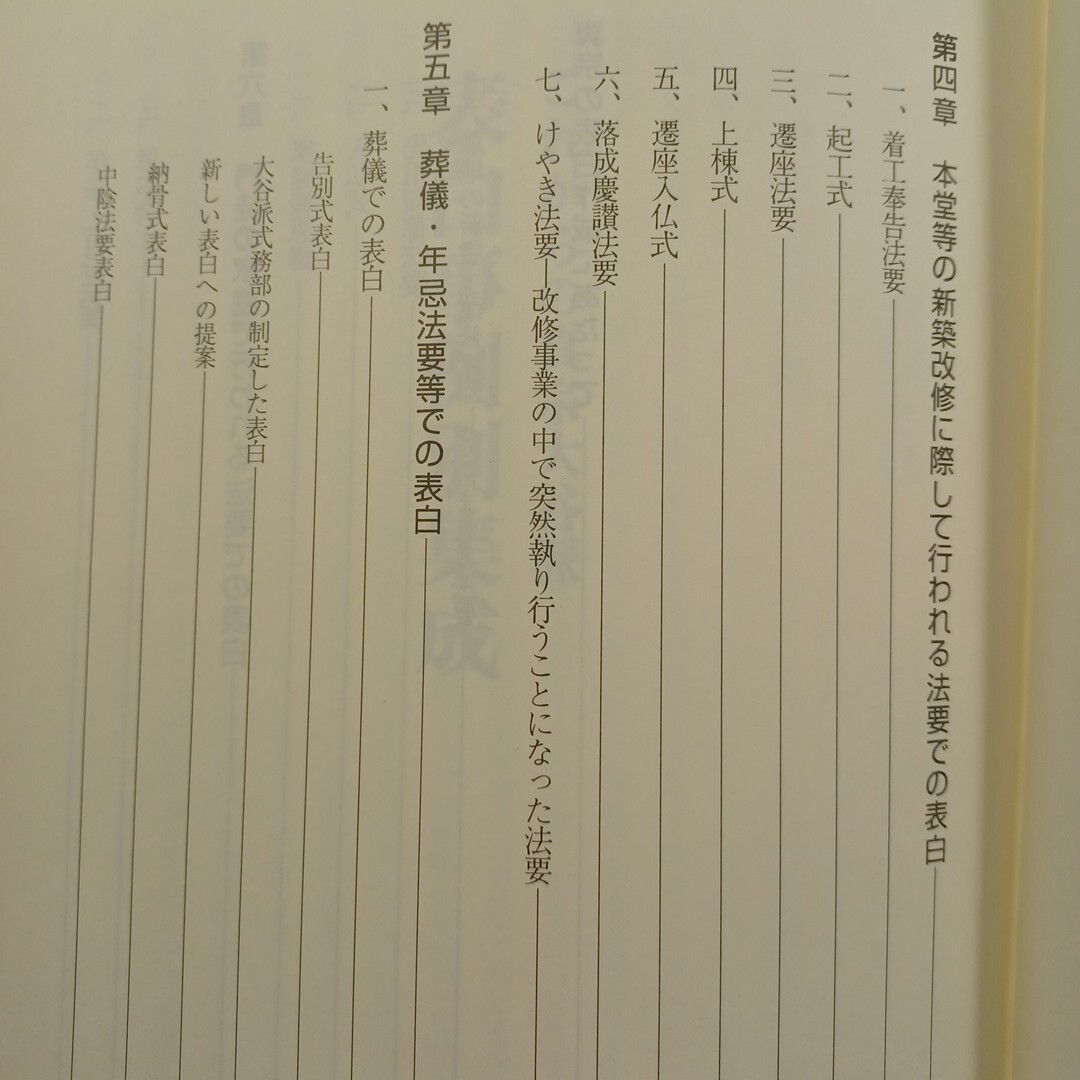 第四章 本堂等の新築改修に際して行われる法要での表白
一、着工奉告法要
二、起工式
三、遷座法要
四、上棟式
五、遷座入仏式
六、落成慶讃法要
七、けやき法要―改修事業の中で突然執り行うことになった法要
第五章 葬儀・年忌法要等での表白
一、葬儀での表白
告別式表白
大谷派式務部の制定した表白
新しい表白への提案
納骨式表白
中陰法要表白